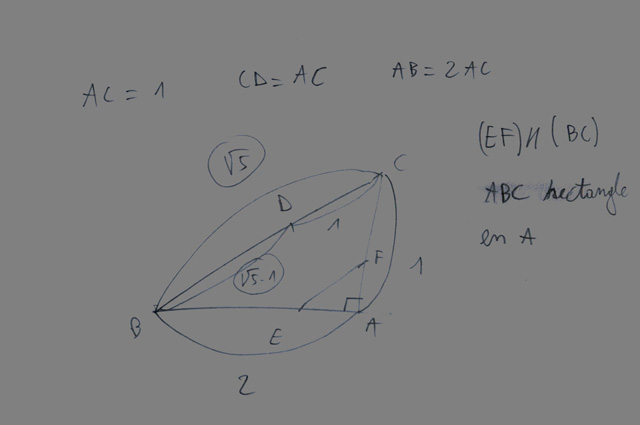 AC = 1
CD = AC
AB = 2AC
(EF) // (BC)
ABC rectangle
en A
√5
C
D
1
F
√5-1
1
B
E
A
2